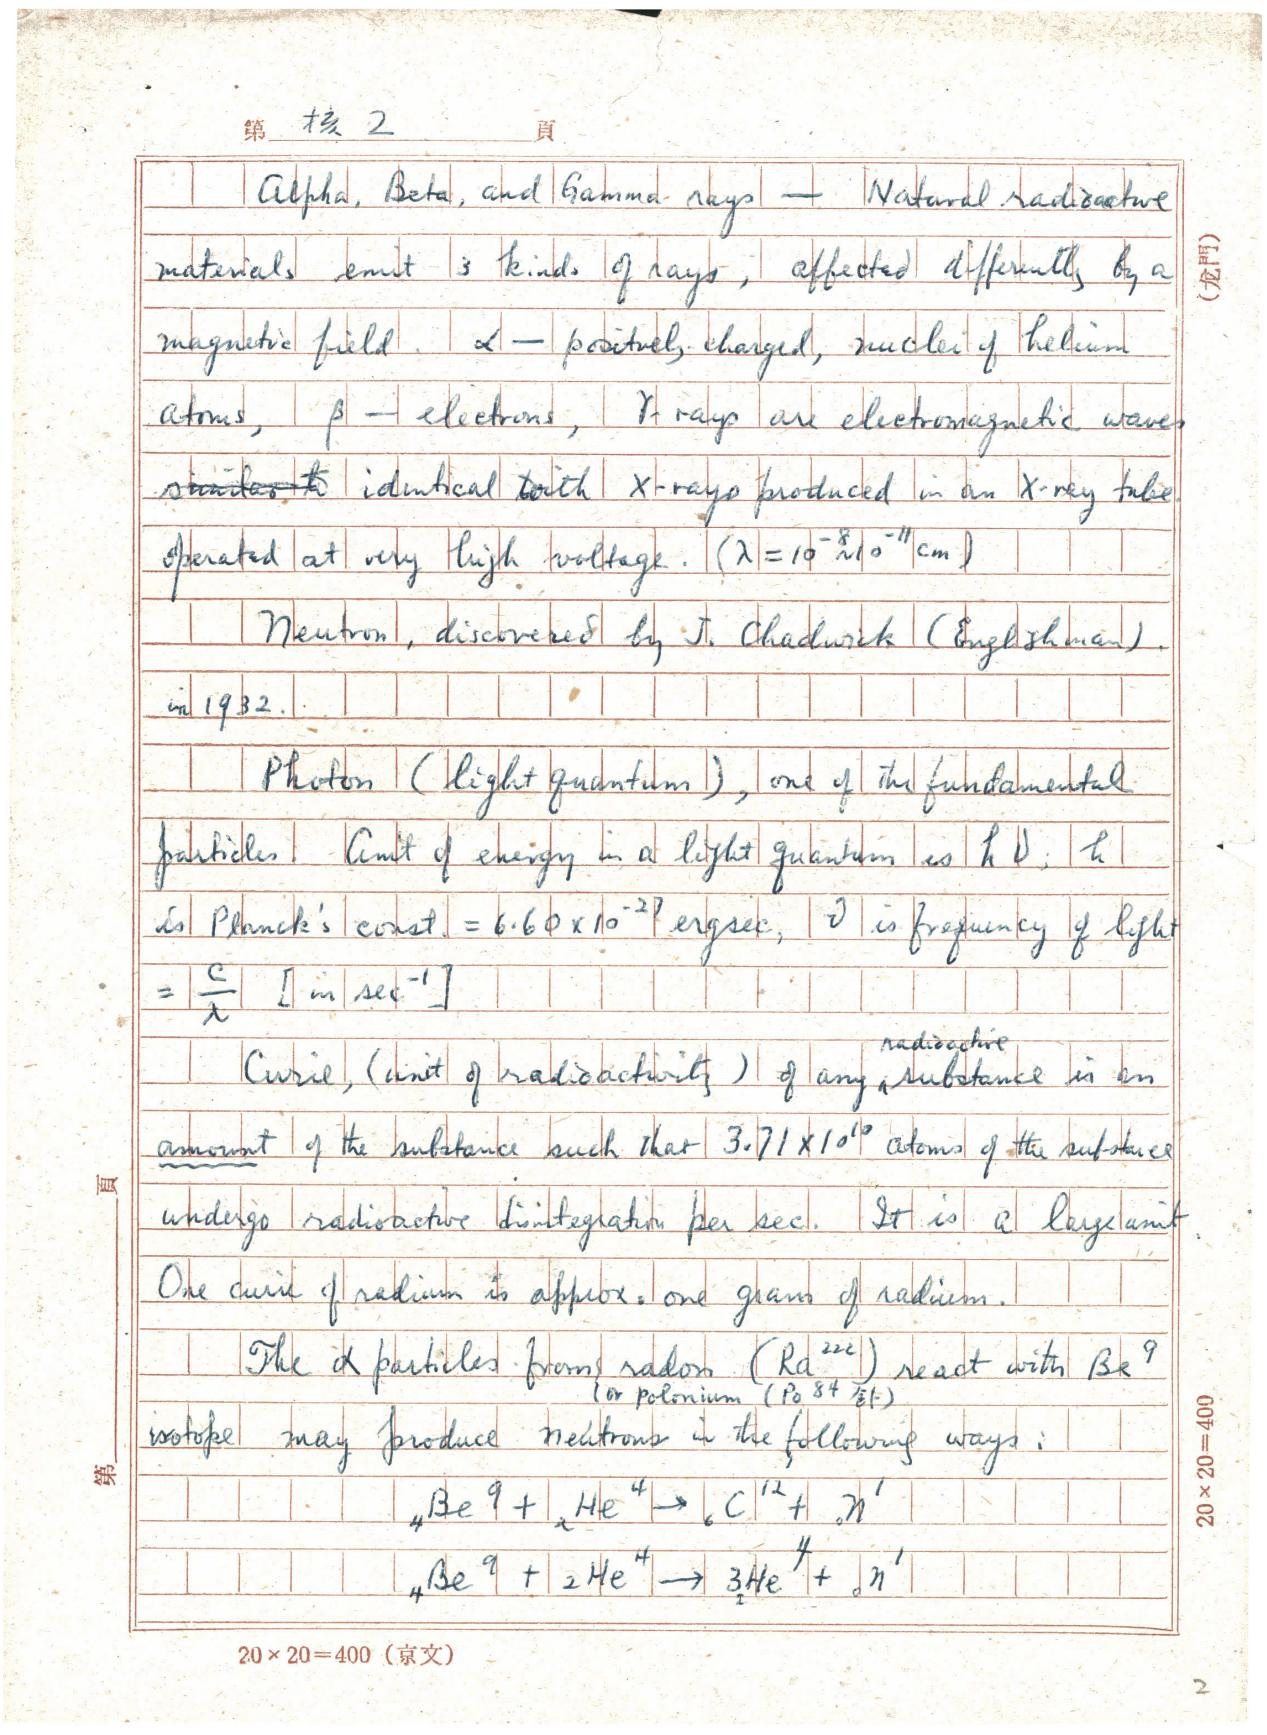 第 核2 頁
Alpha, Beta, and Gamma rays — Natural radioactive
materials emit 3 kinds of rays, affected differently by a
magnetic field. α — positively charged, nuclei of helium
atoms, β — electrons, γ-rays are electromagnetic waves
similar to identical with X-rays produced in an X-ray tube
operated at very high voltage. (λ = 10⁻⁸~10⁻¹¹ cm)
Neutron, discovered by J. Chadwick (Englishman).
in 1932.
Photon (light quantum), one of the fundamental
particles. Unit of energy in a light quantum is hν; h
is Planck's const. = 6.60 x 10⁻²⁷ ergsec, ν is frequency of light
= c/λ [in sec⁻¹]
Curie, (unit of radioactivity) of any radioactive substance is an
amount of the substance such that 3.71 x 10¹⁰ atoms of the substance
undergo radioactive disintegration per sec. It is a large unit
One curie of radium is approx. one gram of radium.
The α particles from radon (Ra²²²) react with Be⁹
(or polonium (Po 84 钋)
isotope may produce neutrons in the following ways:
₄Be⁹ + ₂He⁴ → ₆C¹² + ₀n¹
₄Be⁹ + ₂He⁴ → 3₂He⁴ + ₀n¹
20×20=400 (京文)
(龙門)
第 頁
20×20=400
2